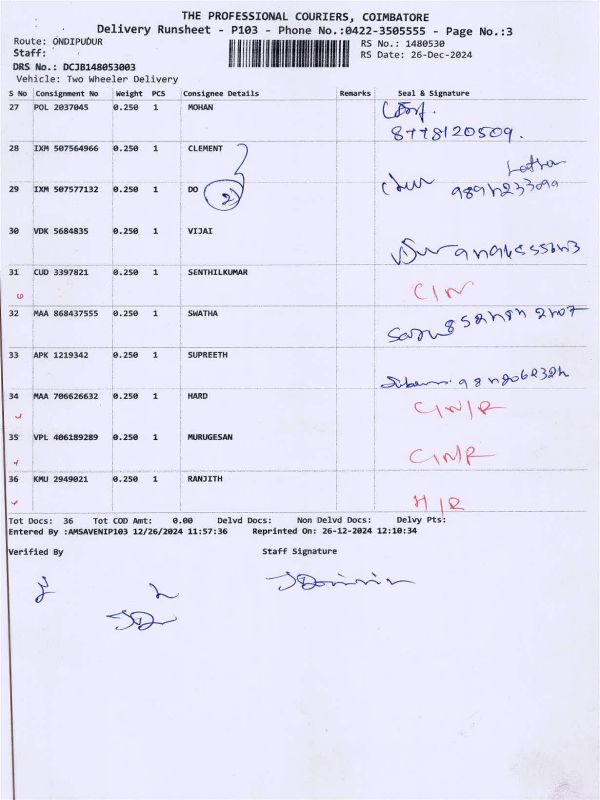 THE PROFESSIONAL COURIERS, COIMBATORE
Delivery Runsheet - P103 - Phone No.:0422-3505555 - Page No.:3
Route: ONDIPUDUR RS No.: 1480530
Staff: RS Date: 26-Dec-2024
DRS No.: DCJB148053003
Vehicle: Two Wheeler Delivery
S No Consignment No Weight PCS Consignee Details Remarks Seal & Signature
27 POL 2037045 0.250 1 MOHAN
8778120509.
28 IXM 507564966 0.250 1 CLEMENT
29 IXM 507577132 0.250 1 DO 2
30 VDK 5684835 0.250 1 VIJAI
31 CUD 3397821 0.250 1 SENTHILKUMAR
32 MAA 868437555 0.250 1 SWATHA
33 APK 1219342 0.250 1 SUPREETH
34 MAA 706626632 0.250 1 HARD
35 VPL 406189289 0.250 1 MURUGESAN
36 KMU 2949021 0.250 1 RANJITH
H/R
Tot Docs: 36 Tot COD Amt: 0.00 Delvd Docs: Non Delvd Docs: Delvy Pts:
Entered By :AMSAVENIP103 12/26/2024 11:57:36 Reprinted On: 26-12-2024 12:10:34
Verified By Staff Signature